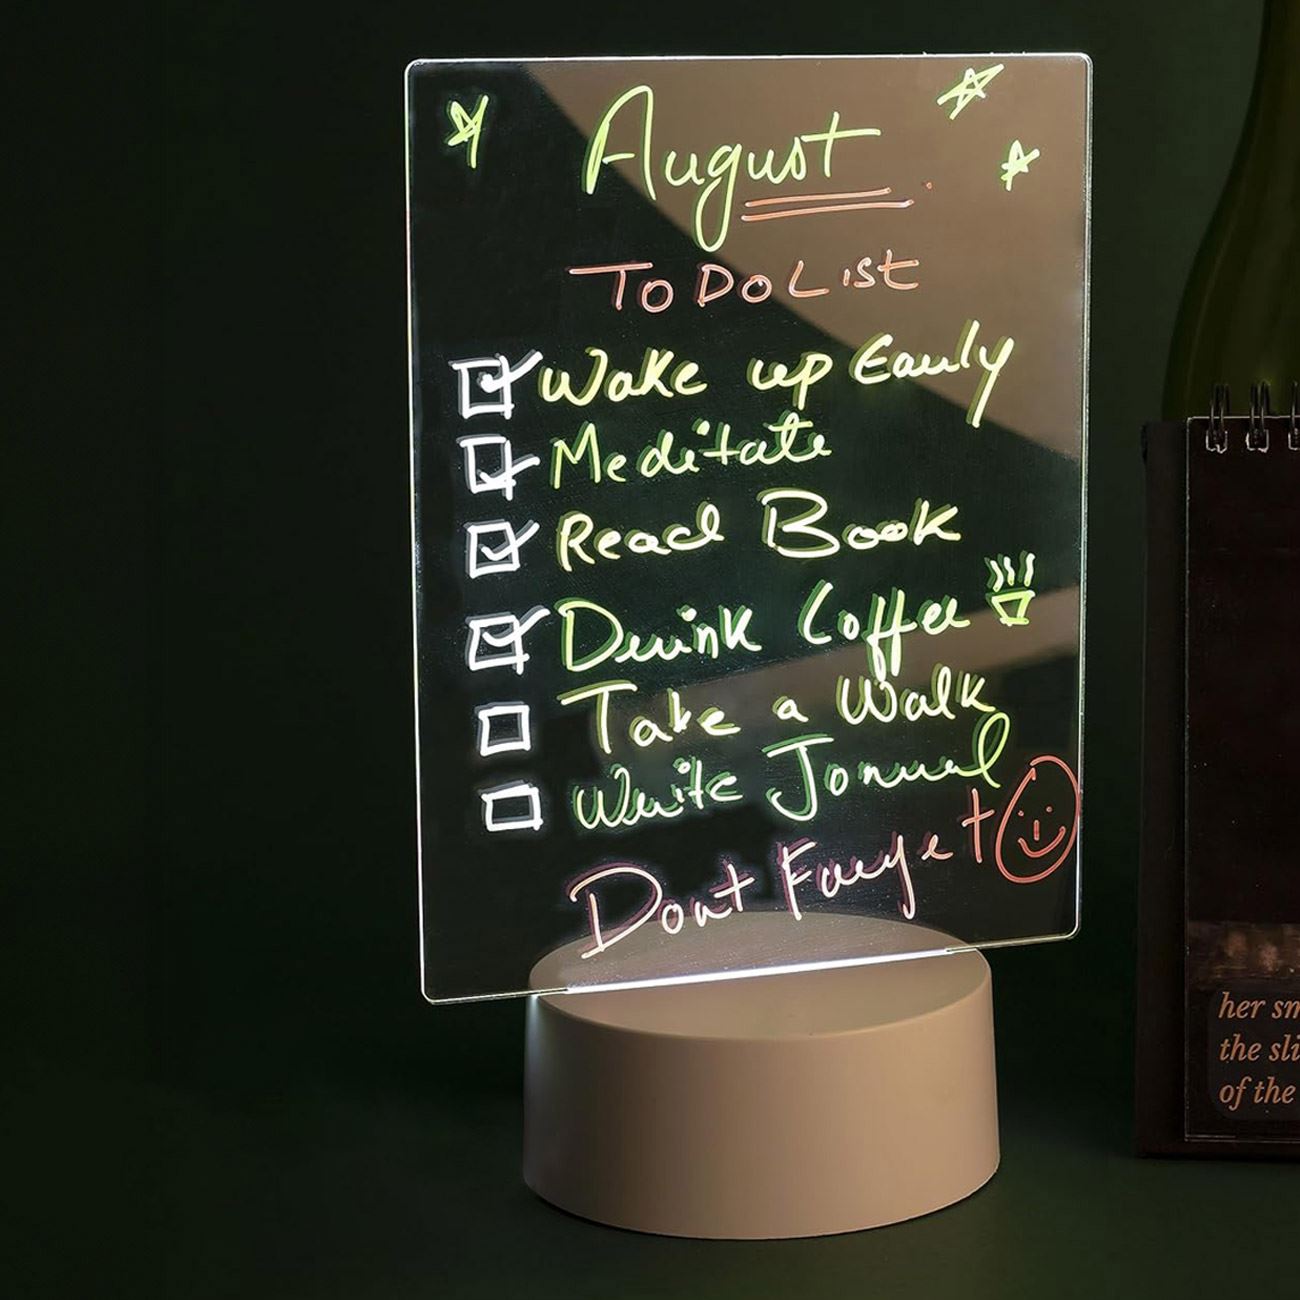 August
To Do List
Wake up Early
Meditate
Read Book
Drink Coffee
Take a Walk
Write Jonunal
Dont Forget
her sm
the sli
of the